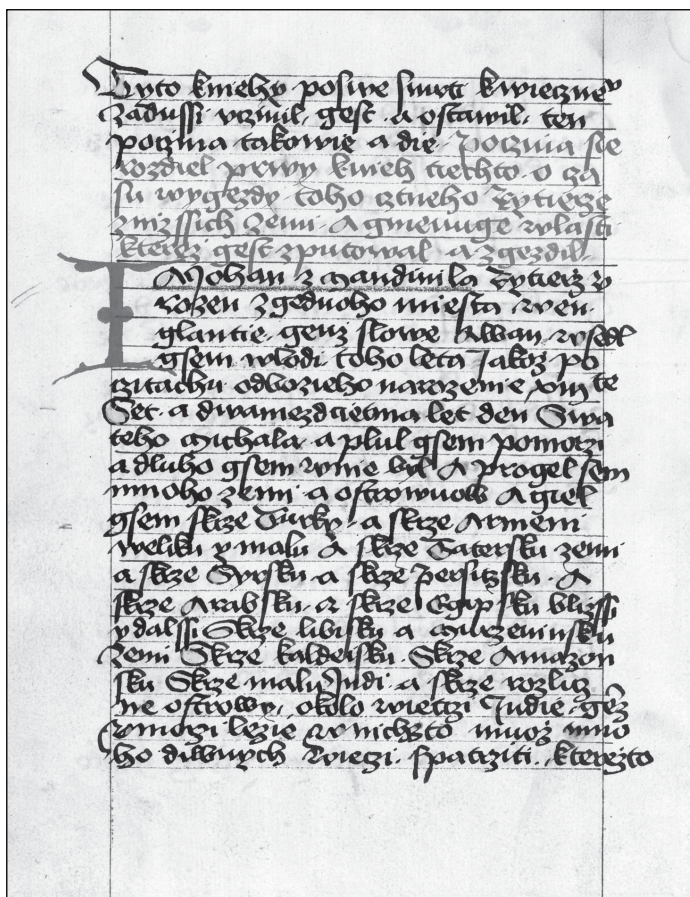 Tyto kniehy poswe smrti kwieczney
zadussi vczinil gest a ostawil ten
poczina takowie a die poczina sie
rozdiel prwy knieh tiechto o cza
su wygezdy toho cztneho rytierze
znizssich zemi Agmenuge wlasti
kterez gest zputowal a zgezdil
IA Johan z Mandiwila rytierz v
rozen zgednoho miesta wen
glantie genz slowe Alban wsedl
gsem wlodi toho leta Jakoz po
czitachu odbozieho narozenie xiii te
Set a dwamezdcietma let den Swa
teho Michala a plul gsem pomorzi
adluho gsem wnie byl A progel sem
mnoho zemi a ostrowuow Agiel
gsem skrze Turky a skrze Armeni
weliku y malu A skrze Tatersku zemi
a skrze Syrsku a skrze Persitzsku A
skrze Arabsku a skrze Egipsku blizssi
y dalssi Skrze libisku a murzeninsku
zemi Skrze kaldeisku Skrze Amazon
sku Skrze malu Judi a skrze rozlicz
ne ostrowy okolo wietczi Judie genz
wmorzi lezie wnichzto muoz mno
ho diwnych wieczi spatrziti kterezto